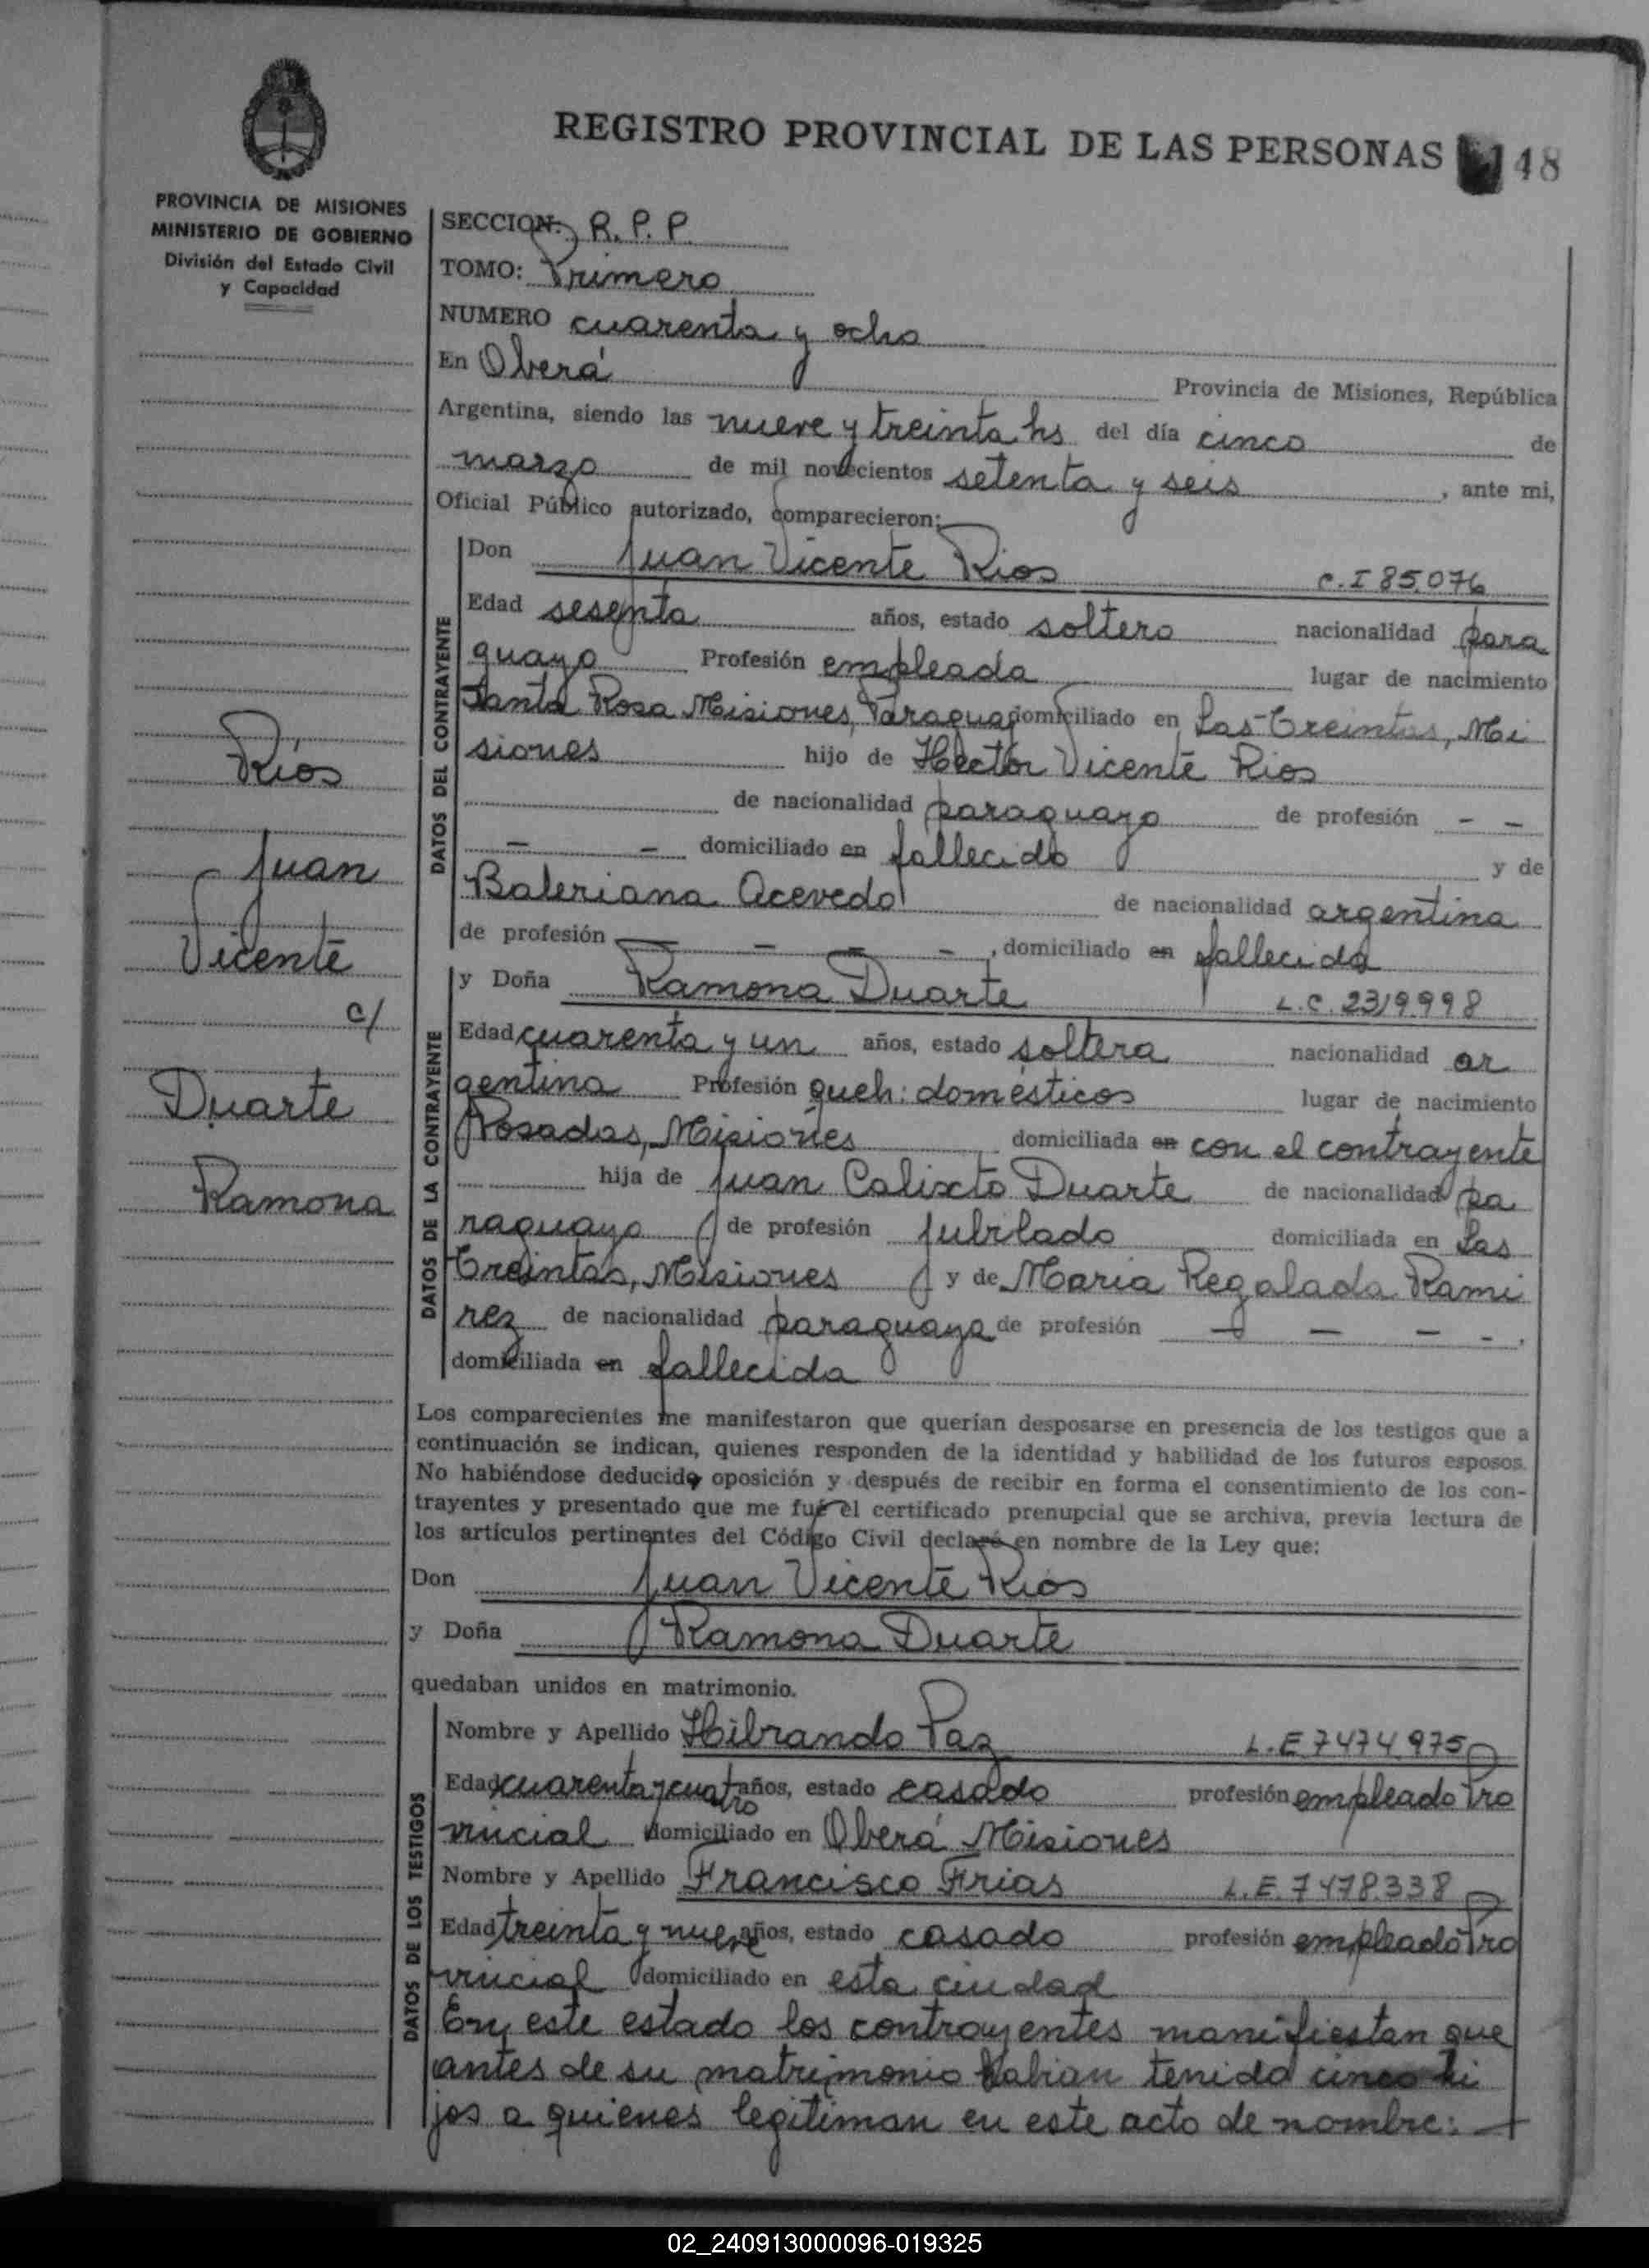 REGISTRO PROVINCIAL DE LAS PERSONAS 48
PROVINCIA DE MISIONES
MINISTERIO DE GOBIERNO
División del Estado Civil
y Capacidad
SECCION: R. P. P.
TOMO: Primero
NUMERO cuarenta y ocho
En Oberá Provincia de Misiones, República
Argentina, siendo las nueve y treinta hs del día cinco de
marzo de mil novecientos setenta y seis, ante mi,
Oficial Público autorizado, comparecieron:
DATOS DEL CONTRAYENTE
Don Juan Vicente Rios C.I 85.076
Edad sesenta años, estado soltero nacionalidad para
guayo Profesión empleado lugar de nacimiento
Santa Rosa Misiones, Paraguay domiciliado en Las Treintas, Mi
siones hijo de Hector Vicente Rios
de nacionalidad paraguayo de profesión - -
- - domiciliado en fallecido y de
Baleriana Acevedo de nacionalidad argentina
de profesión - - - -, domiciliado en fallecida
Ríos
Juan
Vicente
c/
Duarte
Ramona
DATOS DE LA CONTRAYENTE
y Doña Ramona Duarte L.C. 2319.998
Edad cuarenta y un años, estado soltera nacionalidad ar
gentina Profesión queh: domésticos lugar de nacimiento
Posadas, Misiones domiciliada en con el contrayente
hija de Juan Calixto Duarte de nacionalidad pa
raguayo de profesión jubilado domiciliada en Las
Treintas, Misiones y de Maria Regalada Rami
rez de nacionalidad paraguaya de profesión - - - -,
domiciliada en fallecida
Los comparecientes me manifestaron que querían desposarse en presencia de los testigos que a
continuación se indican, quienes responden de la identidad y habilidad de los futuros esposos.
No habiéndose deducido oposición y después de recibir en forma el consentimiento de los con-
trayentes y presentado que me fué el certificado prenupcial que se archiva, previa lectura de
los artículos pertinentes del Código Civil declaré en nombre de la Ley que:
Don Juan Vicente Rios
y Doña Ramona Duarte
quedaban unidos en matrimonio.
DATOS DE LOS TESTIGOS
Nombre y Apellido Hibrando Paz L.E 7474.975
Edad cuarenta y cuatro años, estado casado profesión empleado Pro
vincial domiciliado en Oberá Misiones
Nombre y Apellido Francisco Frias L.E. 7478.338
Edad treinta y nueve años, estado casado profesión empleado Pro
vincial domiciliado en esta ciudad
En este estado los contrayentes manifiestan que
antes de su matrimonio habian tenido cinco hi
jos a quienes legitiman en este acto de nombre:
02_240913000096-019325